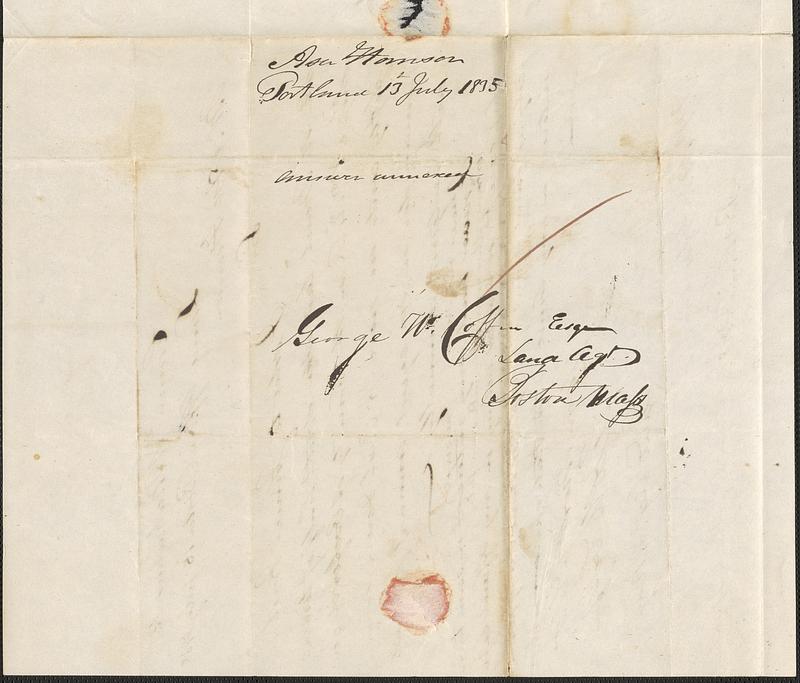 Asa Hanson
Portland 13 July 1835
answer annexed
George W. Coffin Esqr
Land Agt.
Boston Mass